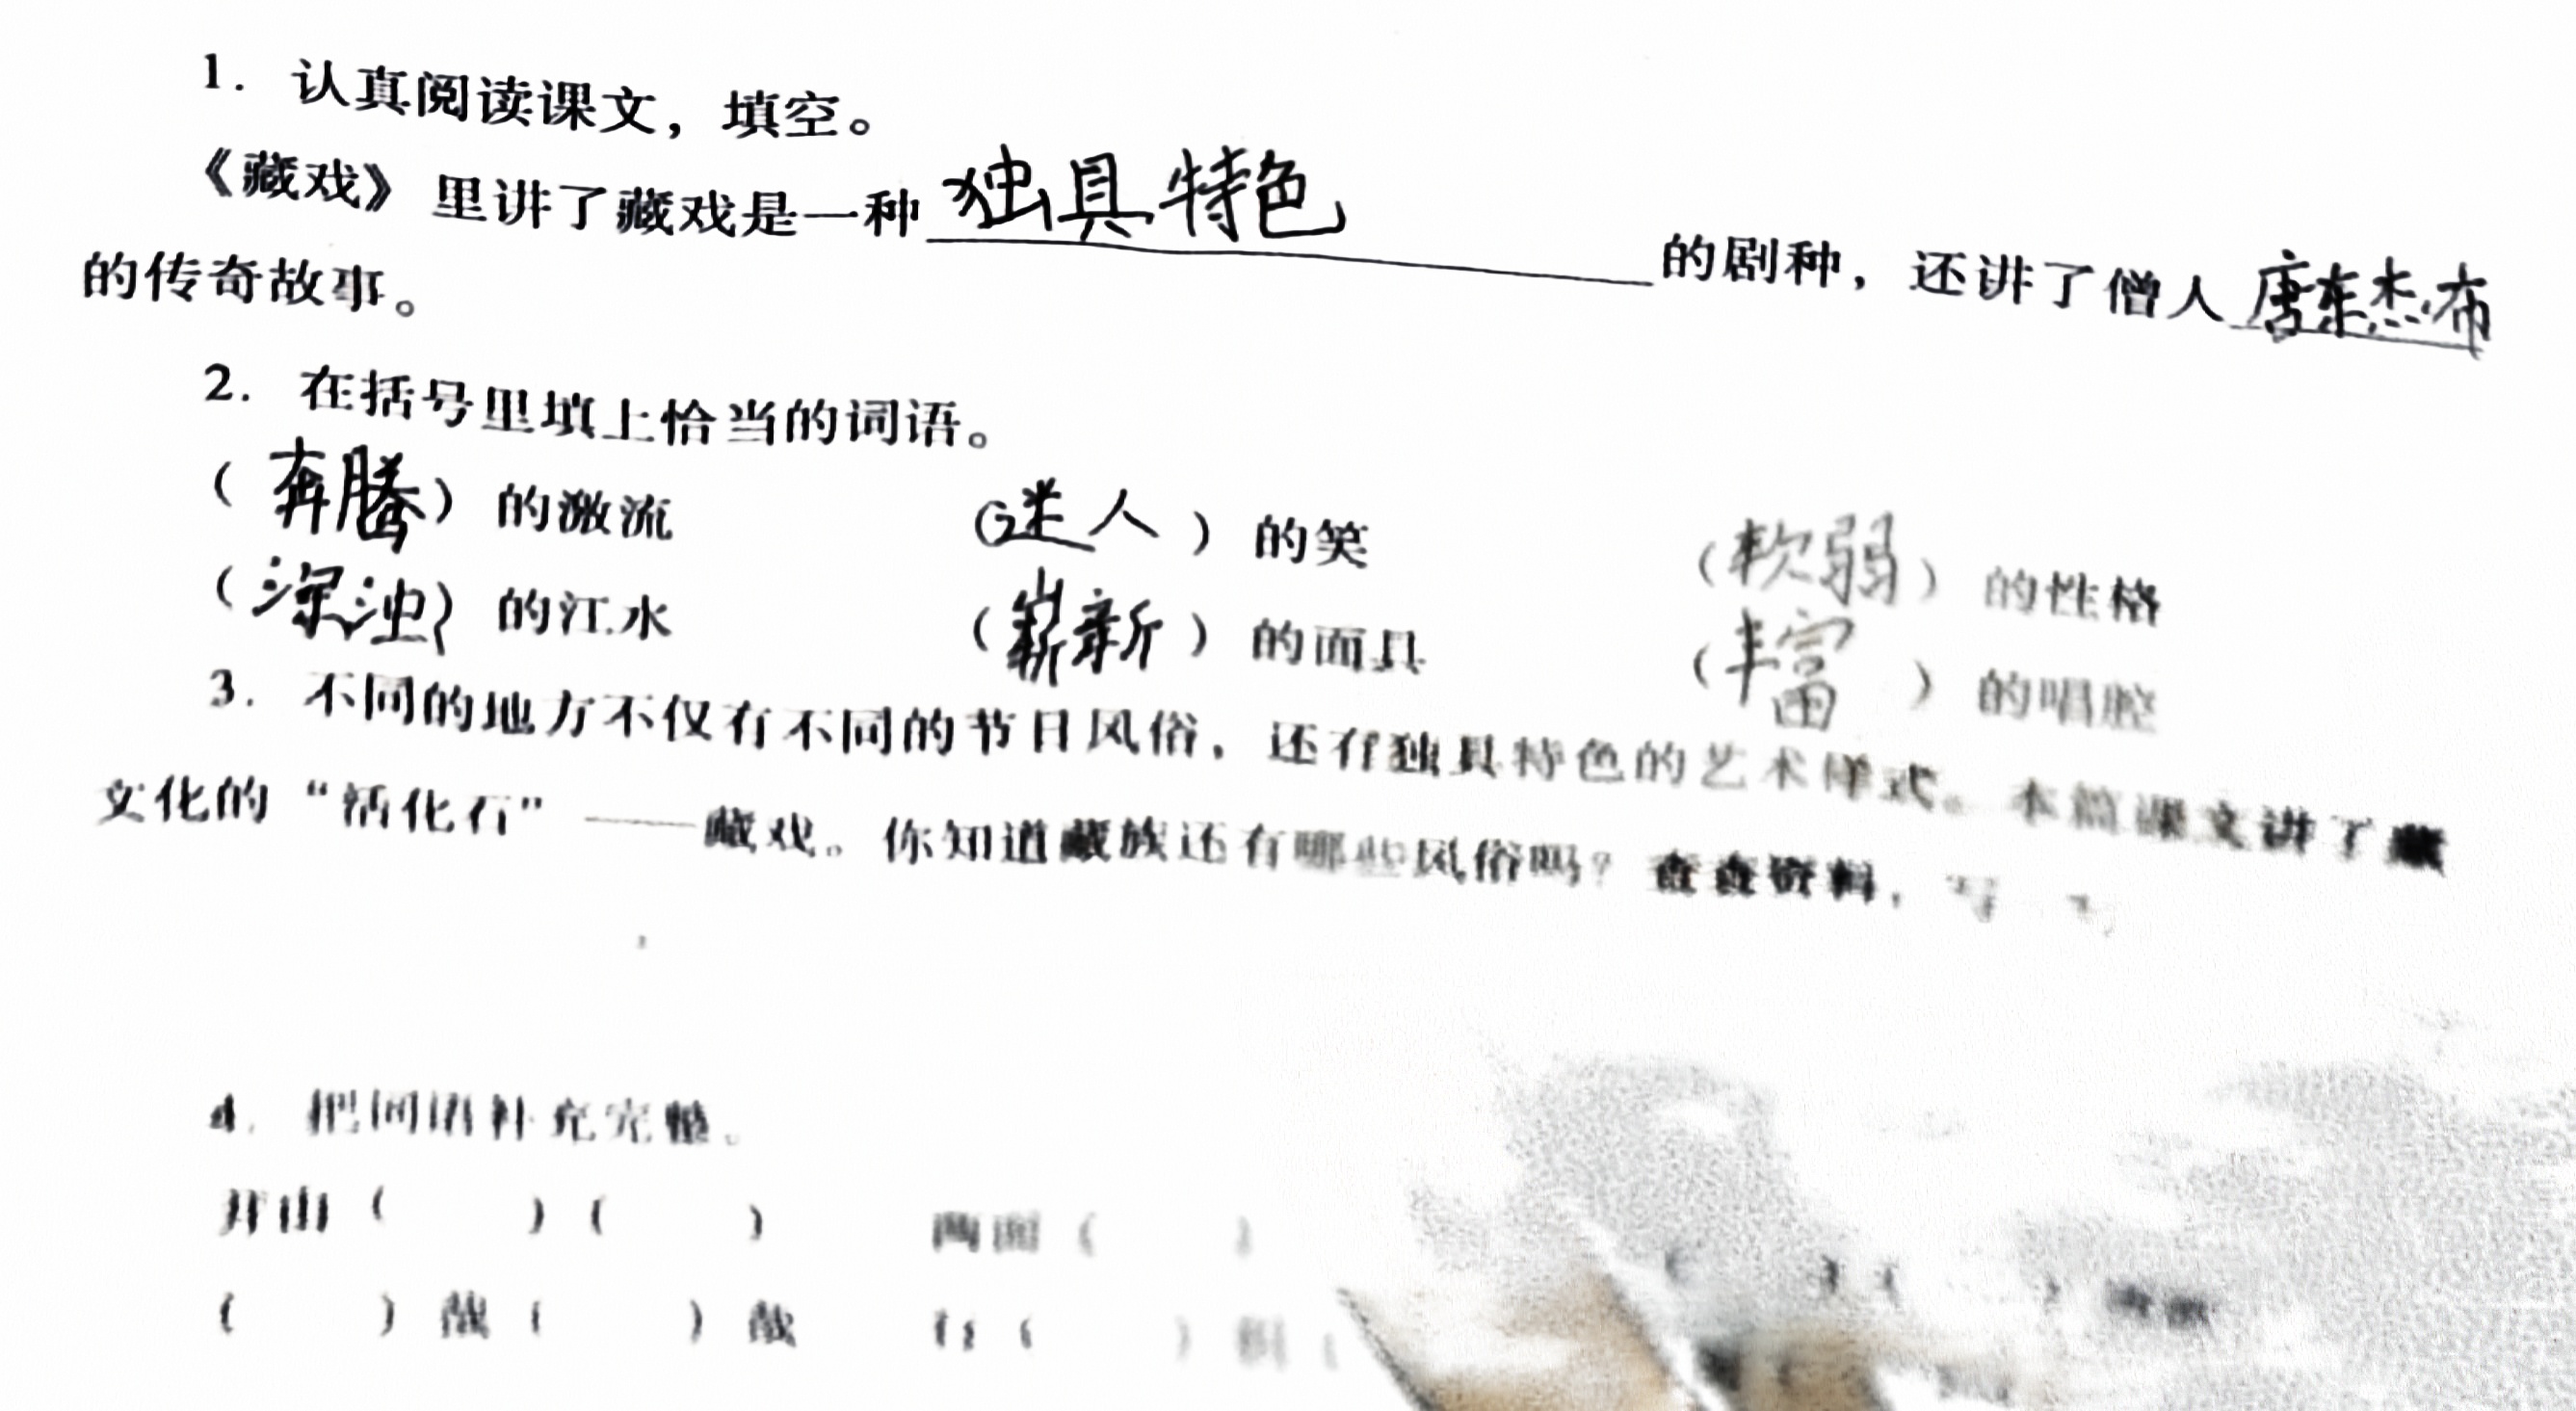 1. 认真阅读课文，填空。
《藏戏》里讲了藏戏是一种独具特色的剧种，还讲了僧人唐东杰布
的传奇故事。
2. 在括号里填上恰当的词语。
（奔腾）的激流 （迷人）的笑 （软弱）的性格
（浑浊）的江水 （崭新）的面具 （丰富）的唱腔
3. 不同的地方不仅有不同的节日风俗，还有独具特色的艺术样式。本篇课文讲了藏
文化的“活化石”——藏戏。你知道藏族还有哪些风俗吗？查查资料，写
4. 把词语补充完整。
开山（ ）（ ） 两面（ ）
（ ）哉（ ）哉 行（ ）